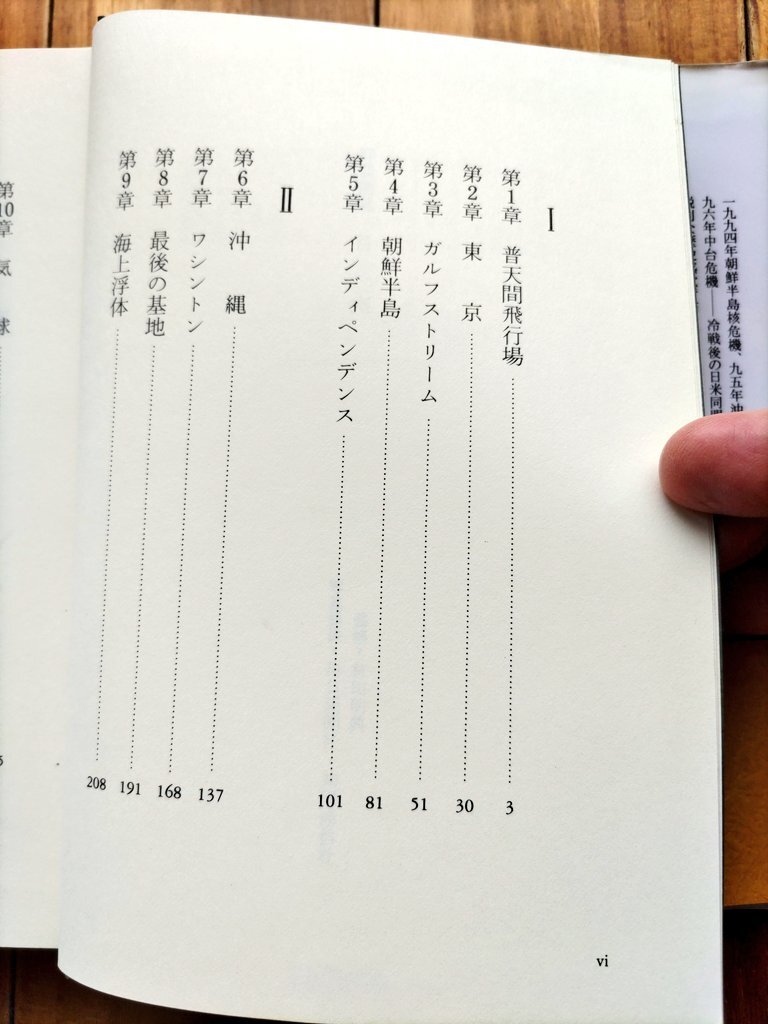 一九九四年朝鮮半島核危機、九五年沖
九六年中台危機——冷戦後の日米同
I
第1章 普天間飛行場 3
第2章 東京 30
第3章 ガルフストリーム 51
第4章 朝鮮半島 81
第5章 インディペンデンス 101
II
第6章 沖縄 137
第7章 ワシントン 168
第8章 最後の基地 191
第9章 海上浮体 208
vi
第10章 気球